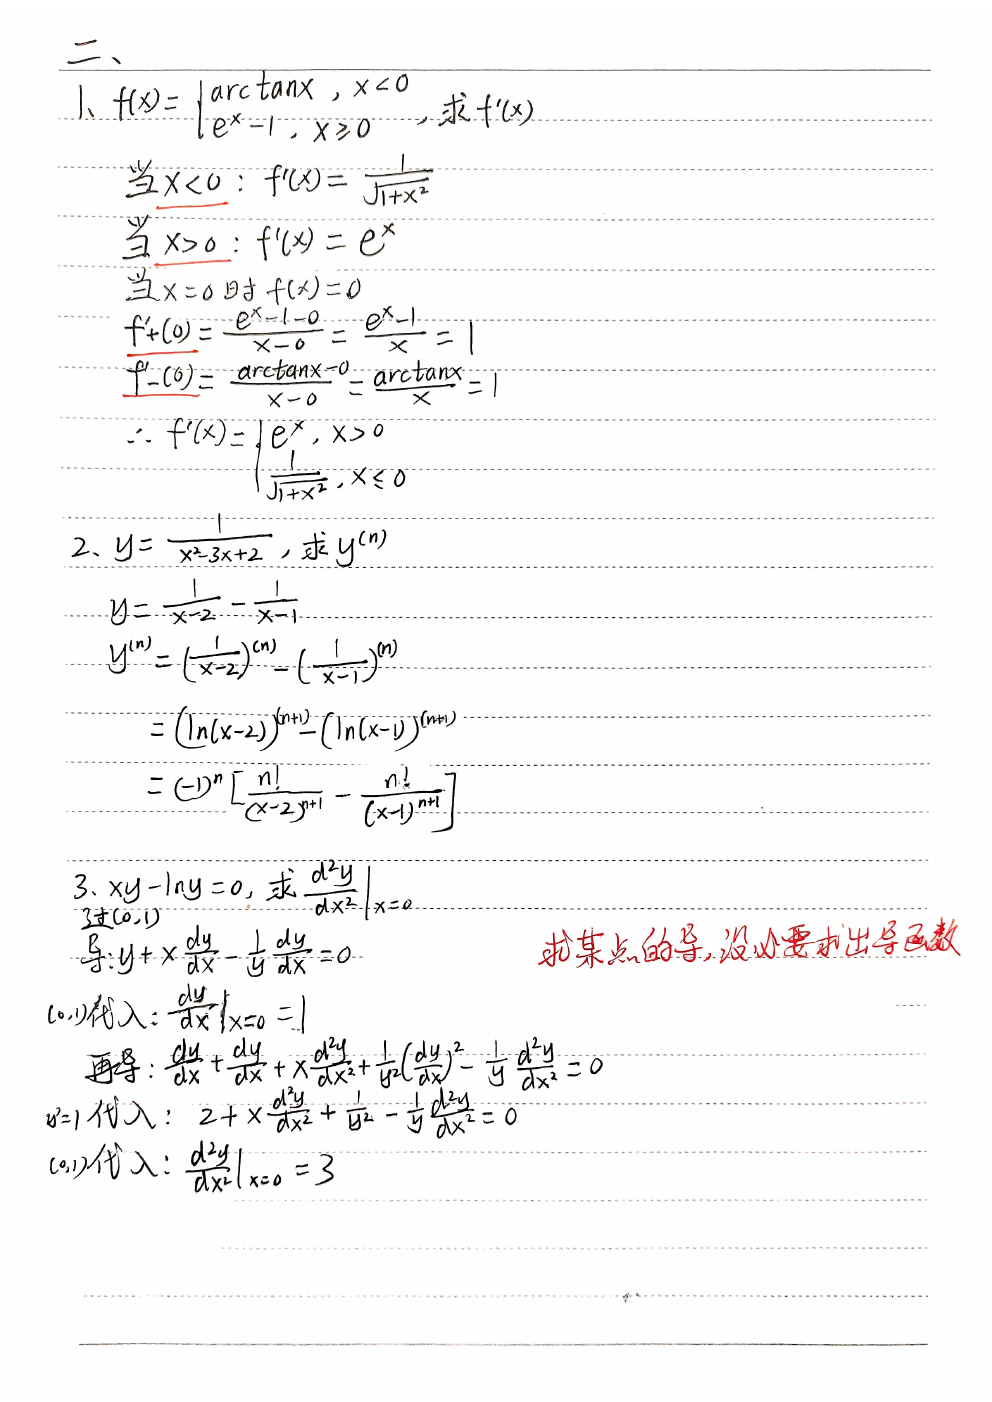 二、
1、f(x)={arctanx , x<0
e^x-1 , x≥0 ,求f'(x)
当x<0: f'(x)=1/√(1+x²)
当x>0: f'(x)=e^x
当x=0时 f(x)=0
f'+(0)=(e^x-1-0)/(x-0)=(e^x-1)/x=1
f'-(0)=(arctanx-0)/(x-0)=arctanx/x=1
∴ f'(x)={e^x , x>0
1/√(1+x²) , x≤0
2、y=1/(x²-3x+2) , 求y^(n)
y=1/(x-2)-1/(x-1)
y^(n)=(1/(x-2))^(n)-(1/(x-1))^(n)
=(ln(x-2))^(n+1)-(ln(x-1))^(n+1)
=(-1)^n[n!/(x-2)^(n+1)-n!/(x-1)^(n+1)]
3、xy-lny=0, 求d²y/dx²|x=0
过(0,1)
导:y+x dy/dx-1/y dy/dx=0
求某点的导,没必要求出导函数
(0,1)代入: dy/dx|x=0=1
再导: dy/dx+dy/dx+x d²y/dx²+1/y²(dy/dx)²-1/y d²y/dx²=0
y'=1代入: 2+x d²y/dx²+1/y²-1/y d²y/dx²=0
(0,1)代入: d²y/dx²|x=0=3